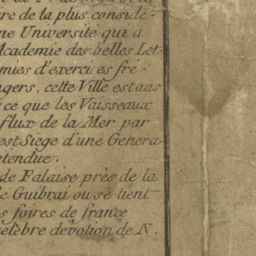 re de la plus conside-
ne Université qui a
Academie des belles Let-
mies d'exerci es fré-
ngers, cette Ville est aus
ce que les Vaisseaux
flux de la Mer par
est Siege d'une Genera
etendue.
de Falaise près de la
e Guibrai ou se tient
s foires de france
celèbre devotion de N.